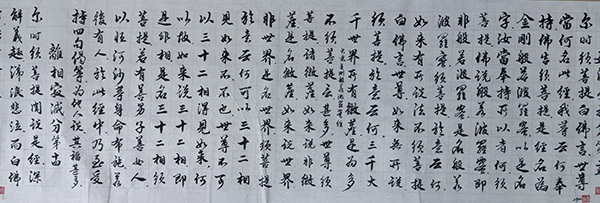 尔时须菩提白佛言世尊
當何名此经我等云何奉
持佛告须菩提是经名為
金剛般若波羅蜜以是名
字汝當奉持所以者何须
菩提佛說般若波羅蜜即
非般若波羅蜜是名般若
波羅蜜须菩提於意云何
如来有所說法不须菩提
白佛言世尊如来無所說
须菩提於意云何三千大
千世界所有微塵是為多
不须菩提言甚多世尊须
菩提諸微塵如来說非微
塵是名微塵如来說世界
非世界是名世界须菩提
於意云何可以三十二相
見如来不不也世尊不可
以三十二相得見如来何
以故如来說三十二相即
是非相是名三十二相须
菩提若有善男子善女人
以恒河沙等身命布施若
復有人於此经中乃至受
持四句偈等為他人說其福甚多
離相寂滅分第十四
尔时须菩提聞說是经深
解義趣涕淚悲泣而白佛